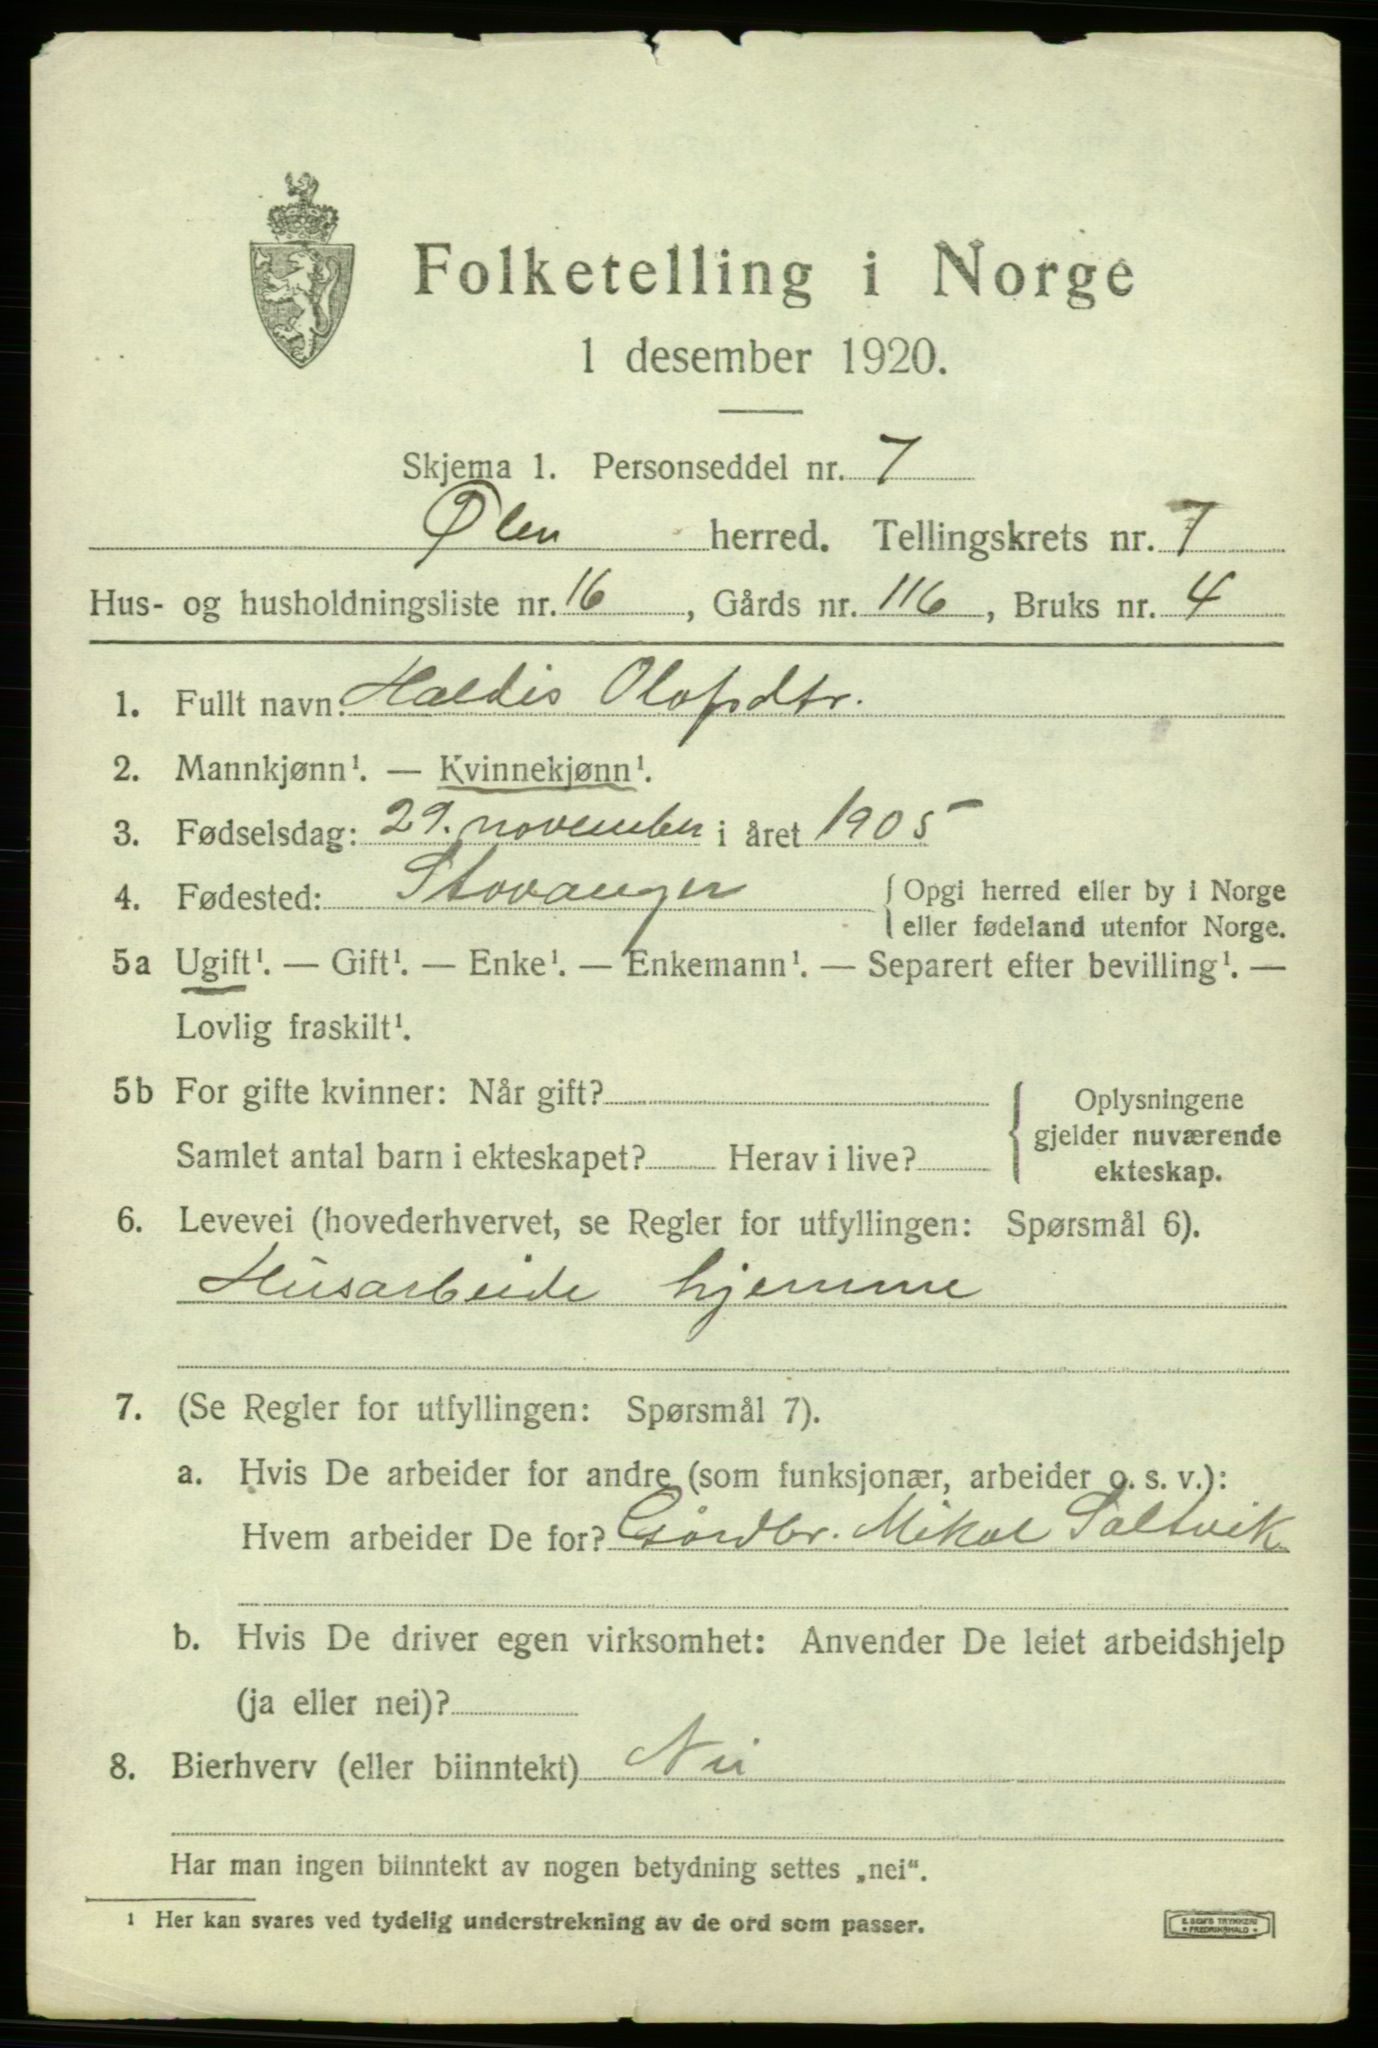 Folketelling i Norge
1 desember 1920.
Skjema 1. Personseddel nr. 7
Ølen herred. Tellingskrets nr. 7
Hus- og husholdningsliste nr. 16, Gårds nr. 116, Bruks nr. 4
1. Fullt navn: Haldis Olafsdtr.
2. Mannkjønn¹. — Kvinnekjønn¹.
3. Fødselsdag: 29. november i året 1905
4. Fødested: Stavanger { Opgi herred eller by i Norge
eller fødeland utenfor Norge.
5a Ugift¹. — Gift¹. — Enke¹. — Enkemann¹. — Separert efter bevilling¹. —
Lovlig fraskilt¹.
5b For gifte kvinner: Når gift?
Samlet antal barn i ekteskapet? Herav i live?
Oplysningene
gjelder nuværende
ekteskap.
6. Levevei (hovederhvervet, se Regler for utfyllingen: Spørsmål 6).
Husarbeide hjemme
7. (Se Regler for utfyllingen: Spørsmål 7).
a. Hvis De arbeider for andre (som funksjonær, arbeider o. s. v.):
Hvem arbeider De for? Gårdbr. Mikal Saltvik
b. Hvis De driver egen virksomhet: Anvender De leiet arbeidshjelp
(ja eller nei)?
8. Bierhverv (eller biinntekt) Nei
Har man ingen biinntekt av nogen betydning settes „nei“.
¹ Her kan svares ved tydelig understrekning av de ord som passer.
E. SEM'S TRYKKERI
• FREDRIKSHALD •